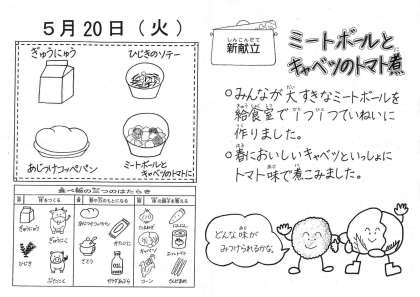 5月20日(火)
ぎゅうにゅう
ひじきのソテー
あじつけコッペパン
ミートボールと
キャベツのトマトに
食べ物の三つのはたらき
ぎゅうにゅう
ぎゅうにく
ひじき
ぶたにく
さとう
オイル
コーン
しんこんだて
新献立
ミートボールと
キャベツのトマト煮
○みんなが大すきなミートボールを
給食室で1つ1つていねいに
作りました。
○春においしいキャベツといっしょに
トマト味で煮こみました。
どんな味が
みつけられるかな。